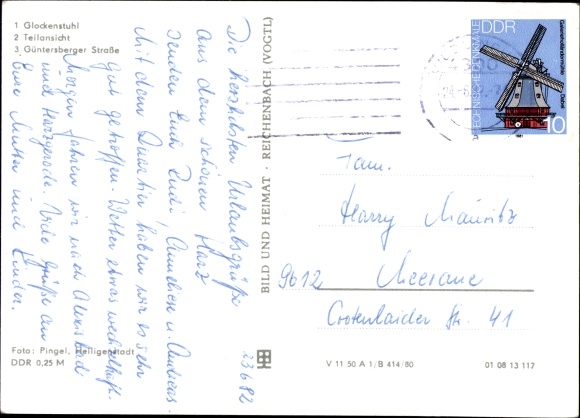 1 Glockenstuhl
2 Teilansicht
3 Güntersberger Straße
Die herzlichsten Urlaubsgrüße
aus dem schönen Harz
senden Euch Rudi, Anneliese u. Andreas.
Mit dem Quartier haben wir es sehr
gut getroffen. Wetter etwas wechselhaft.
Morgen fahren wir nach Alexisbad
und Harzgerode. Viele Grüße an
Eure Mutter und Kinder.
23.6.82
Foto: Pingel, Heiligenstadt
DDR 0,25 M
BILD UND HEIMAT · REICHENBACH (VOGTL)
DDR
TECHNISCHE DENKMALE
Dabel
1981
10
Fam.
Harry Mauritz
9612 Meerane
Crotenlaider Str. 41
V 11 50 A 1/B 414/80
01 08 13 117